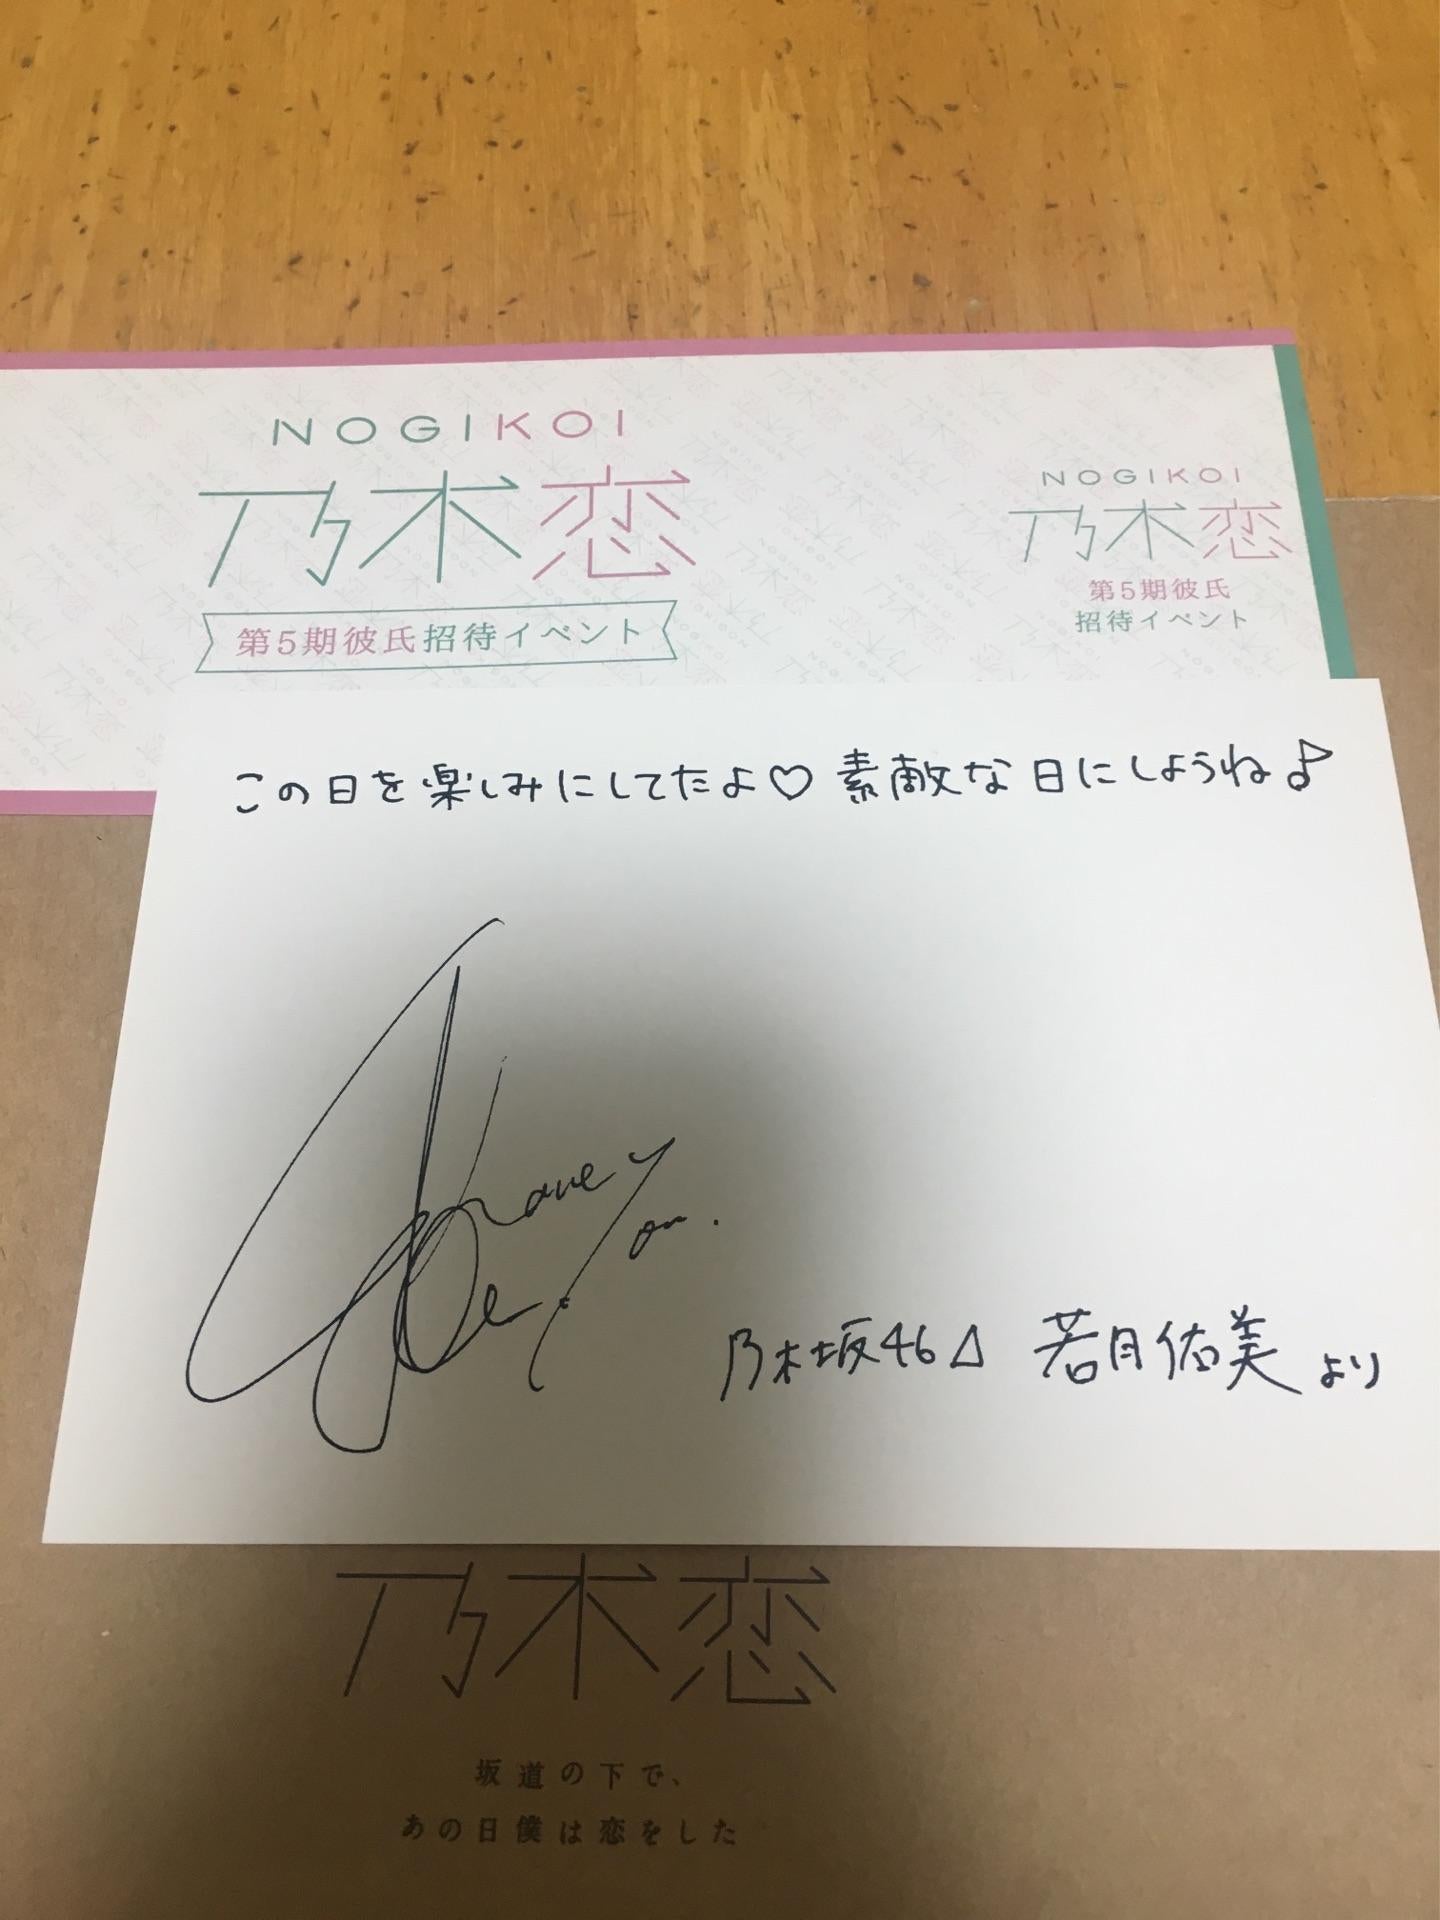 NOGIKOI
乃木恋
第5期彼氏招待イベント
NOGIKOI
乃木恋
第5期彼氏
招待イベント
この日を楽しみにしてたよ♡素敵な日にしようね♪
乃木坂46△ 若月佑美より
乃木恋
坂道の下で、
あの日僕は恋をした